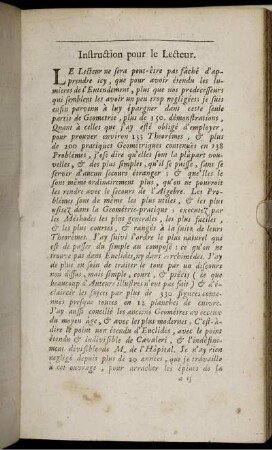 Instruction pour le Lecteur.
LE Lecteur ne sera peut-être pas fâché d'ap-
prendre icy, que pour avoir étendu les lu-
mieres de l'Entendement, plus que nos predecesseurs
qui semblent les avoir un peu trop negligées je suis
enfin parvenu à luy épargner dans cette seule
partie de Geometrie, plus de 150. démonstrations,
Quant à celles que j'ay esté obligé d'employer,
pour prouver environ 135 Theorêmes, & plus
de 200 pratiques Geometriques contenuës en 138
Problêmes, j'ose dire qu'elles sont la plûpart nou-
velles, & des plus simples, qu'il se puisse, sans se
servir d'aucun secours étranger : & que'elles le
sont même ordinairement plus, qu'on ne pourroit
les rendre avec le secours de l'Algebre. Les Pro-
blêmes sont de même les plus utiles, & les plus
usitez dans la Geometrie-pratique : executez par
les Methodes les plus generales, les plus faciles,
& les plus courtes, & rangés à la suite de leurs
Theorêmes. J'ay suivi l'ordre le plus naturel qui
est de passer du simple au composé : ce qu'on ne
trouve pas dans Euclides, ny dans Archimedes. J'ay
de plus eu soin de traiter le tout par un discours
non diffus, mais simple, court, & précis ( ce que
beaucoup d'Auteurs illustres n'ont pas fait ) & d'é-
claircir les sujets par plus de 330 figures conte-
nuës presque toutes en 12 planches de cuivre.
J'ay aussi concilié les anciens Geometres ou ceux
du moyen âge, & avec les plus modernes. C'est-à-
dire le point non étendu d'Euclides, avec le point
étendu & indivisible de Cavaleri, & l'indéfini-
ment divisible de M. de l'Hôpital. Je n'ay rien
negligé depuis plus de 20 années, que je travaille
à cet ouvrage, pour arracher les épines de la
a ij